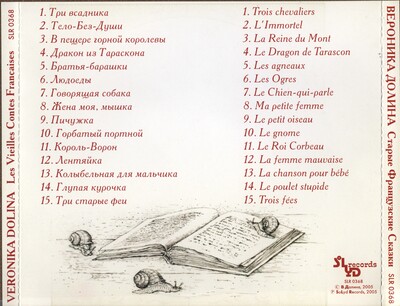 VERONIKA DOLINA Les Vieilles Contes Francaises SLR 0368
1. Три всадника
2. Тело-Без-Души
3. В пещере горной королевы
4. Дракон из Тараскона
5. Братья-барашки
6. Людоеды
7. Говорящая собака
8. Жена моя, мышка
9. Пичужка
10. Горбатый портной
11. Король-Ворон
12. Лентяйка
13. Колыбельная для мальчика
14. Глупая курочка
15. Три старые феи
1. Trois chevaliers
2. L'Immortel
3. La Reine du Mont
4. Le Dragon de Tarascon
5. Les agneaux
6. Les Ogres
7. Le Chien-qui-parle
8. Ma petite femme
9. Le petit oiseau
10. Le gnome
11. Le Roi Corbeau
12. La femme mauvaise
13. La chanson pour bébé
14. Le poulet stupide
15. Trois fées
SLYD records
SLR 0368
© В.Долина, 2003
℗ SoLyd Records, 2003
ВЕРОНИКА ДОЛИНА Старые Французские Сказки SLR 0368